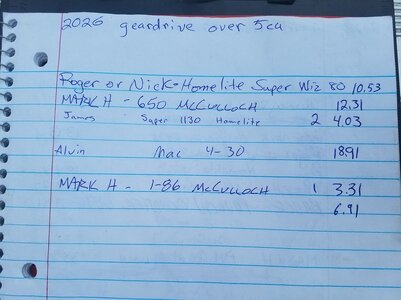 2026 geardrive over 5cu
Roger or Nick-Homelite Super Wiz 80 10.53
MARK H - 650 McCULLOCH 12.31
James Super 1130 Homelite 2 4.03
Alvin Mac 4-30 18.91
MARK H - 1-86 McCULLOCH 1 3.31
6.91